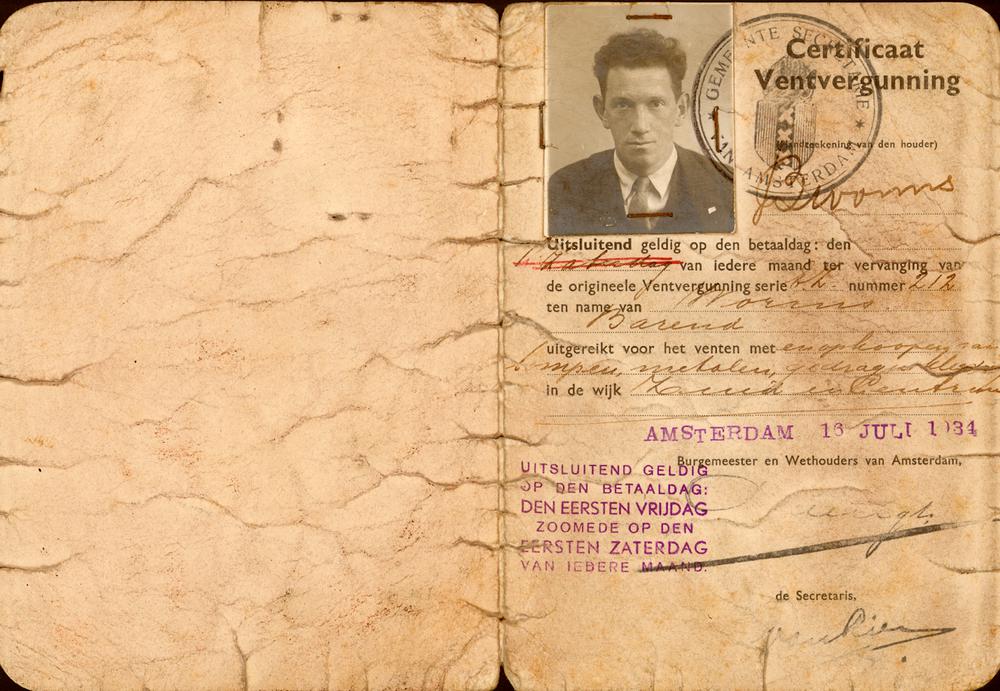 GEMEENTE SECRETARIE
VAN AMSTERDAM
Certificaat
Ventvergunning
(Handteekening van den houder)
B Worms
Uitsluitend geldig op den betaaldag: den
Zaterdag van iedere maand ter vervanging van
de origineele Ventvergunning serie nummer 212
ten name van Worms
Barend
uitgereikt voor het venten met en opkoopen van
lompen, metalen, gedragen
in de wijk Zuid en Centrum
AMSTERDAM 16 JULI 1934
Burgemeester en Wethouders van Amsterdam,
UITSLUITEND GELDIG
OP DEN BETAALDAG:
DEN EERSTEN VRIJDAG
ZOOMEDE OP DEN
EERSTEN ZATERDAG
VAN IEDERE MAAND.
de Secretaris,